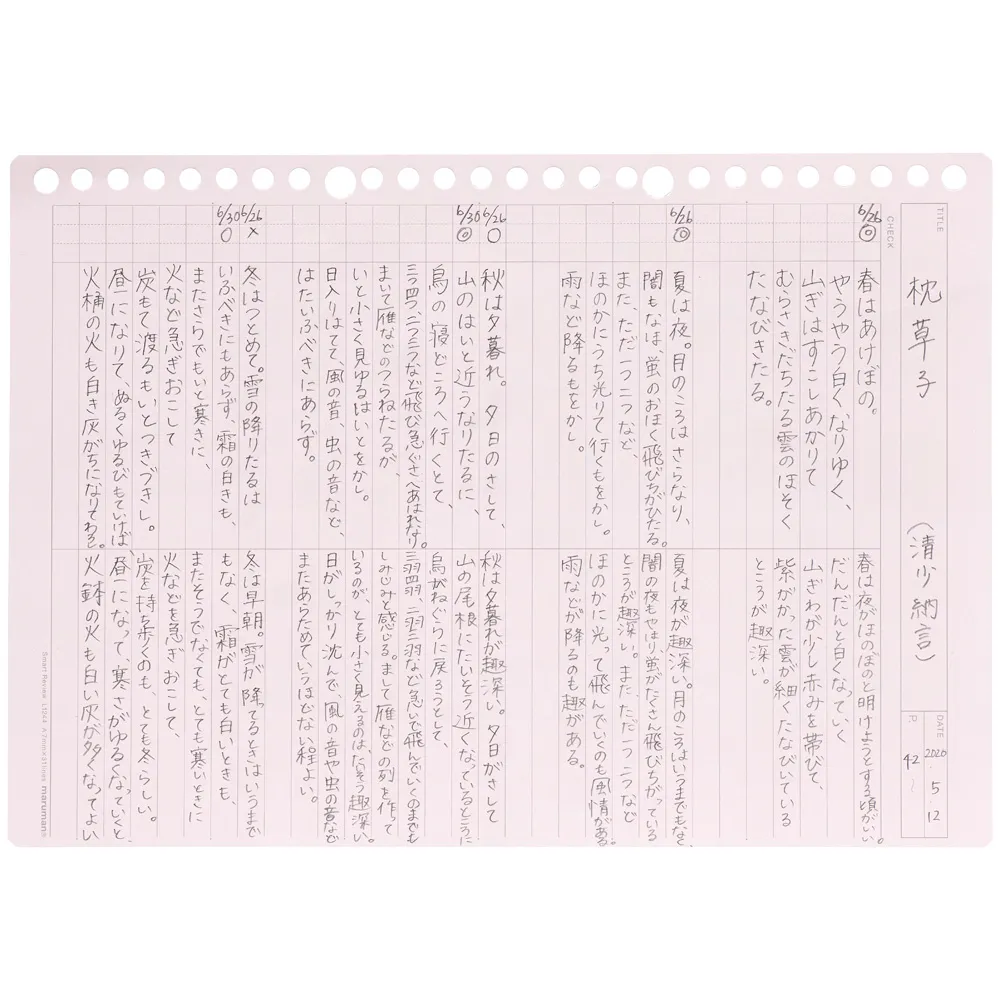 TITLE
枕草子
(清少納言)
DATE
2020・5・12
P.
42〜
CHECK
6/26
◎
6/26
◎
6/26
○
6/30
◎
6/26
×
6/30
○
春はあけぼの。
やうやう白くなりゆく、
山ぎはすこしあかりて
むらさきだちたる雲のほそく
たなびきたる。
夏は夜。月のころはさらなり、
闇もなほ、蛍のおほく飛びちがひたる。
また、ただ一つ二つなど、
ほのかにうち光りて行くもをかし。
雨など降るもをかし。
秋は夕暮れ。夕日のさして、
山のはいと近うなりたるに、
烏の寝どころへ行くとて、
三つ四つ、二つ三つなど飛び急ぐさへあはれなり。
まいて雁などのつらねたるが、
いと小さく見ゆるはいとをかし。
日入りはてて、風の音、虫の音など、
はたいふべきにあらず。
冬はつとめて。雪の降りたるは
いふべきにもあらず、霜の白きも、
またさらでもいと寒きに、
火など急ぎおこして
炭もて渡るもいとつきづきし。
昼になりて、ぬるくゆるびもていけば、
火桶の火も白き灰がちになりてわろし。
春は夜がほのぼのと明けようとする頃がいい。
だんだんと白くなっていく
山ぎわが少し赤みを帯びて、
紫がかった雲が細くたなびいている
ところが趣深い。
夏は夜が趣深い。月のころはいうまでもなく
闇の夜もやはり蛍がたくさん飛びちがっている
ところが趣深い。また、ただ一つ二つなど
ほのかに光って飛んでいくのも風情がある。
雨などが降るのも趣がある。
秋は夕暮れが趣深い。夕日がさして
山の尾根にたいそう近くなっているところに
烏がねぐらに戻ろうとして、
三羽四羽、二羽三羽など急いで飛んでいくのまでも
しみじみと感じる。まして雁などの列を作って
いるのが、とても小さく見えるのは、たいそう趣深い。
日がしっかり沈んで、風の音や虫の音など
またあらためていうほどない程よい。
冬は早朝。雪が降ってるときはいうまで
もなく、霜がとても白いときも、
またそうでなくても、とても寒いときに
火などを急ぎおこして、
炭を持ち歩くのも、とても冬らしい。
昼になって、寒さがゆるくなっていくと
火鉢の火も白い灰が多くなってよい
Smart Review L1244 A 7mm×41lines maruman®